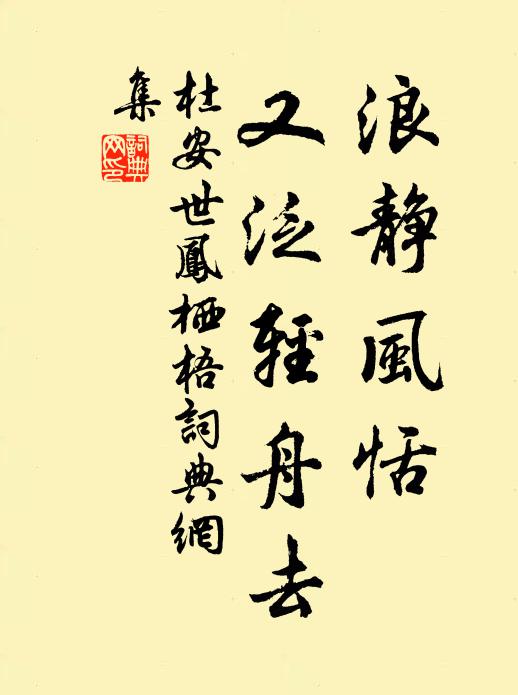 浪静風恬
又泛輕舟去
杜安世鳳栖梧詞典網
集
詞典
网印